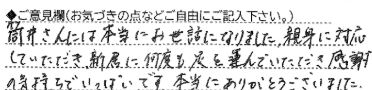 ◆ご意見欄(お気づきの点などご自由にご記入下さい。)
筒井さんには本当にお世話になりました。親身に対応
していただき、新居に何度も足を運んでいただき感謝
の気持ちでいっぱいです。本当にありがとうございました。